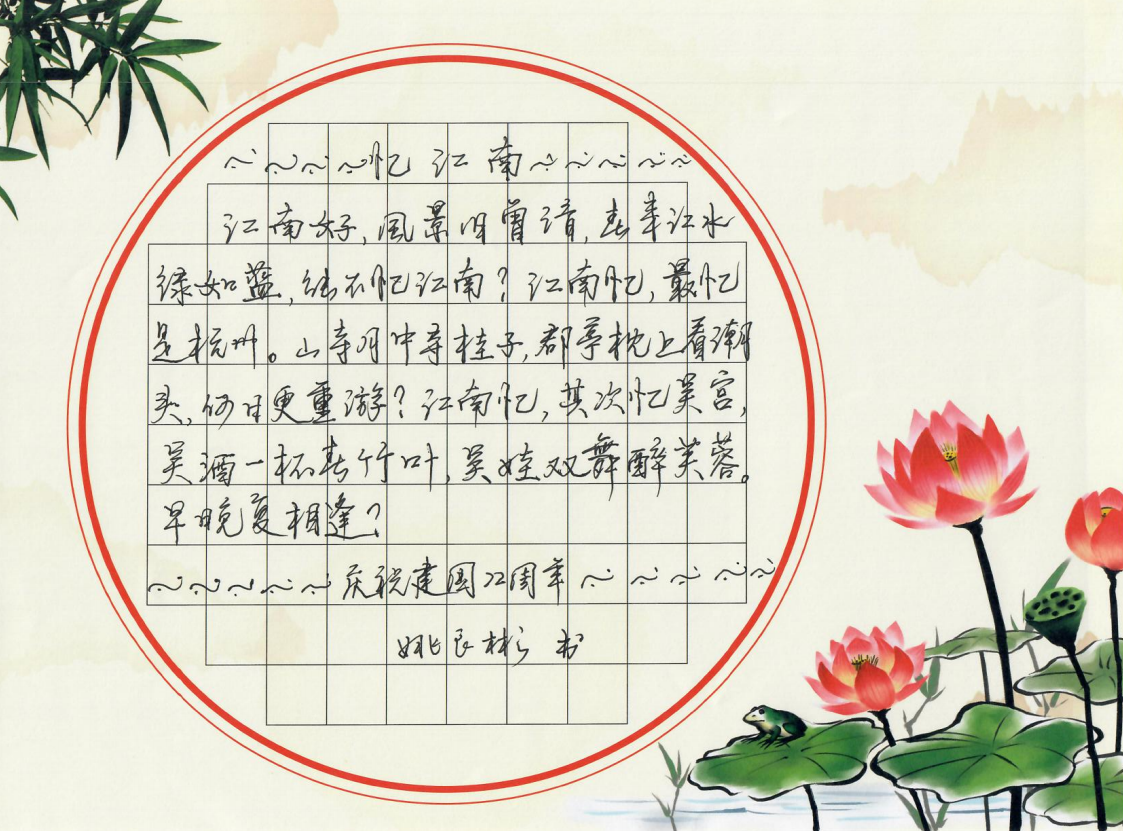 ～～～～忆江南～～～～～
江南好，風景旧曾谙，春来江水
绿如蓝，能不忆江南？江南忆，最忆
是杭州。山寺月中寻桂子，郡亭枕上看潮
头，何日更重游？江南忆，其次忆吴宫，
吴酒一杯春竹叶，吴娃双舞醉芙蓉。
早晚复相逢？
～～～～～庆祝建国72周年～～～～～
姚良彬 书